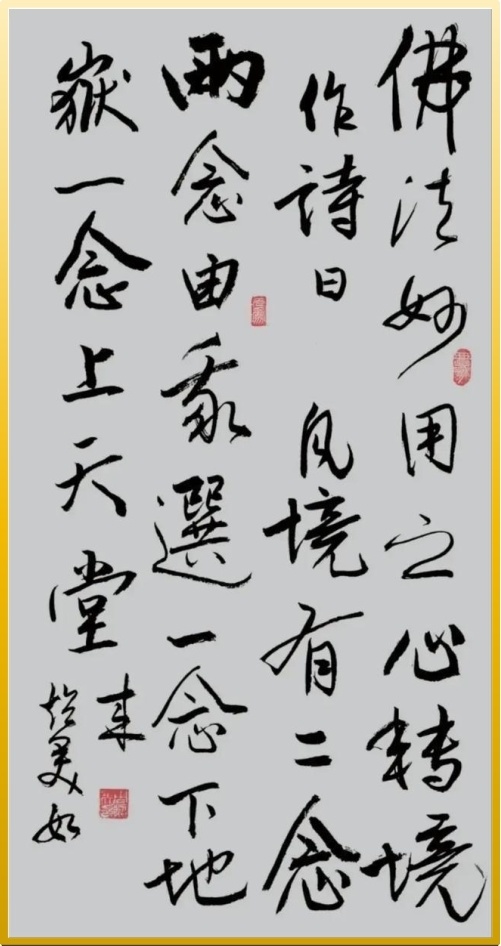 佛法妙用之心轉境
作詩曰 凡境有二念
兩念由我選一念下地
嶽一念上天堂
来
美如